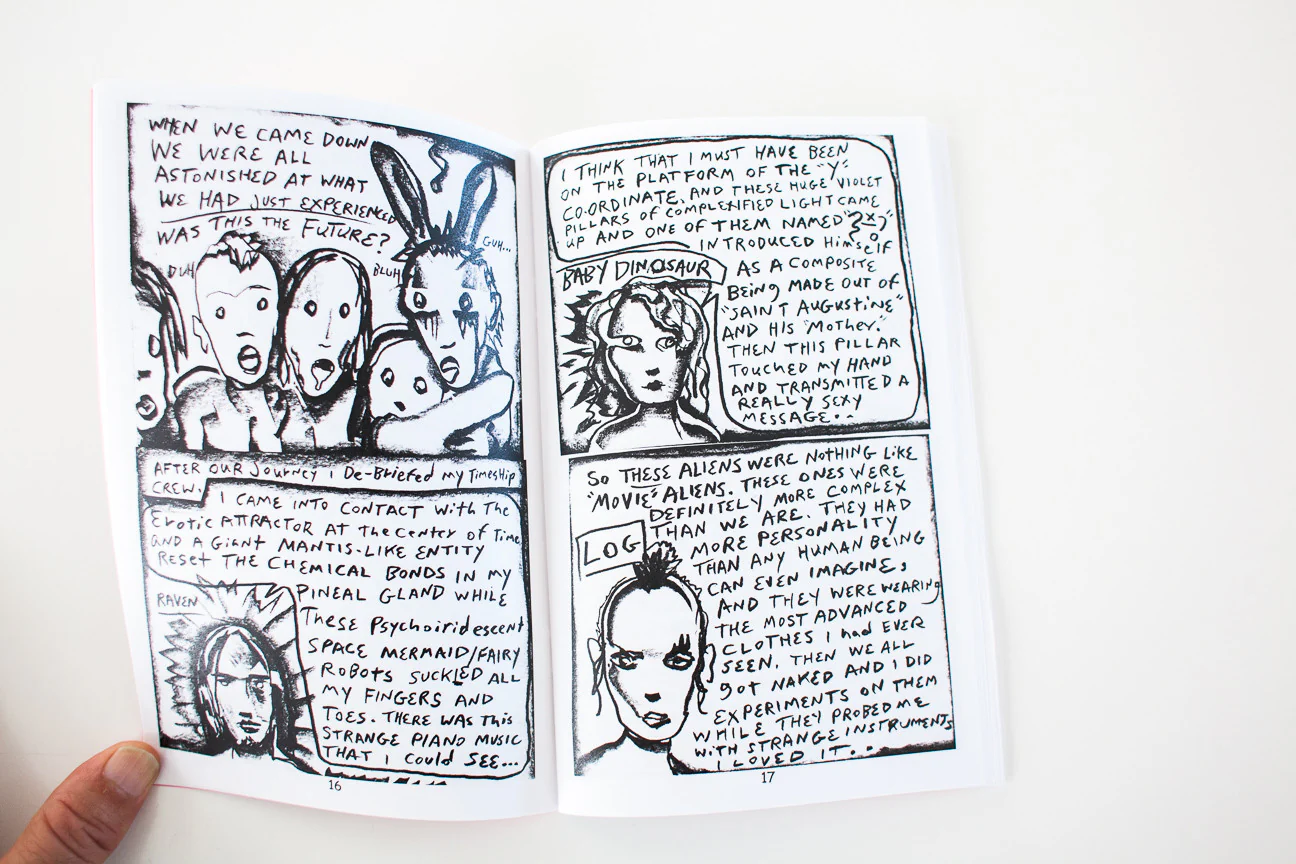 WHEN WE CAME DOWN
WE WERE ALL
ASTONISHED AT WHAT
WE HAD JUST EXPERIENCED
WAS THIS THE FUTURE?
DUH
BLUH
GUH...
AFTER OUR JOURNEY I De-Briefed my Timeship
CREW.
I CAME INTO CONTACT WITH The
Erotic ATTRACTOR AT The Center of Time
AND A GIANT MANTIS-LIKE ENTITY
RESET THE CHEMICAL BONDS IN MY
PINEAL GLAND WHILE
RAVEN
These Psychoiridescent
SPACE MERMAID/FAIRY
ROBOTS SUCKLED ALL
MY FINGERS AND
TOES. THERE WAS This
STRANGE PIANO MUSIC
THAT I Could SEE...
16
I THINK THAT I MUST HAVE BEEN
ON THE PLATFORM OF THE "Y"
CO-ORDINATE, AND THESE HUGE VIOLET
PILLARS OF COMPLEXIFIED LIGHT CAME
UP AND ONE OF THEM NAMED
INTRODUCED Himself
BABY DINOSAUR
AS A COMPOSITE
BEING MADE OUT OF
"SAINT AUGUSTINE"
AND HIS "MOTHER."
THEN THIS PILLAR
TOUCHED MY HAND
AND TRANSMITTED A
REALLY SEXY
MESSAGE..
SO THESE ALIENS WERE NOTHING LIKE
"MOVIE" ALIENS. THESE ONES WERE
DEFINITELY MORE COMPLEX
THAN WE ARE. THEY HAD
LOG
MORE PERSONALITY
THAN ANY HUMAN BEING
CAN EVEN IMAGINE,
AND THEY WERE WEARING
THE MOST ADVANCED
CLOTHES I had EVER
SEEN. THEN WE ALL
got NAKED AND I DID
EXPERIMENTS ON THEM
WHILE THEY PROBED ME
WITH STRANGE INSTRUMENTS
I LOVED IT...
17